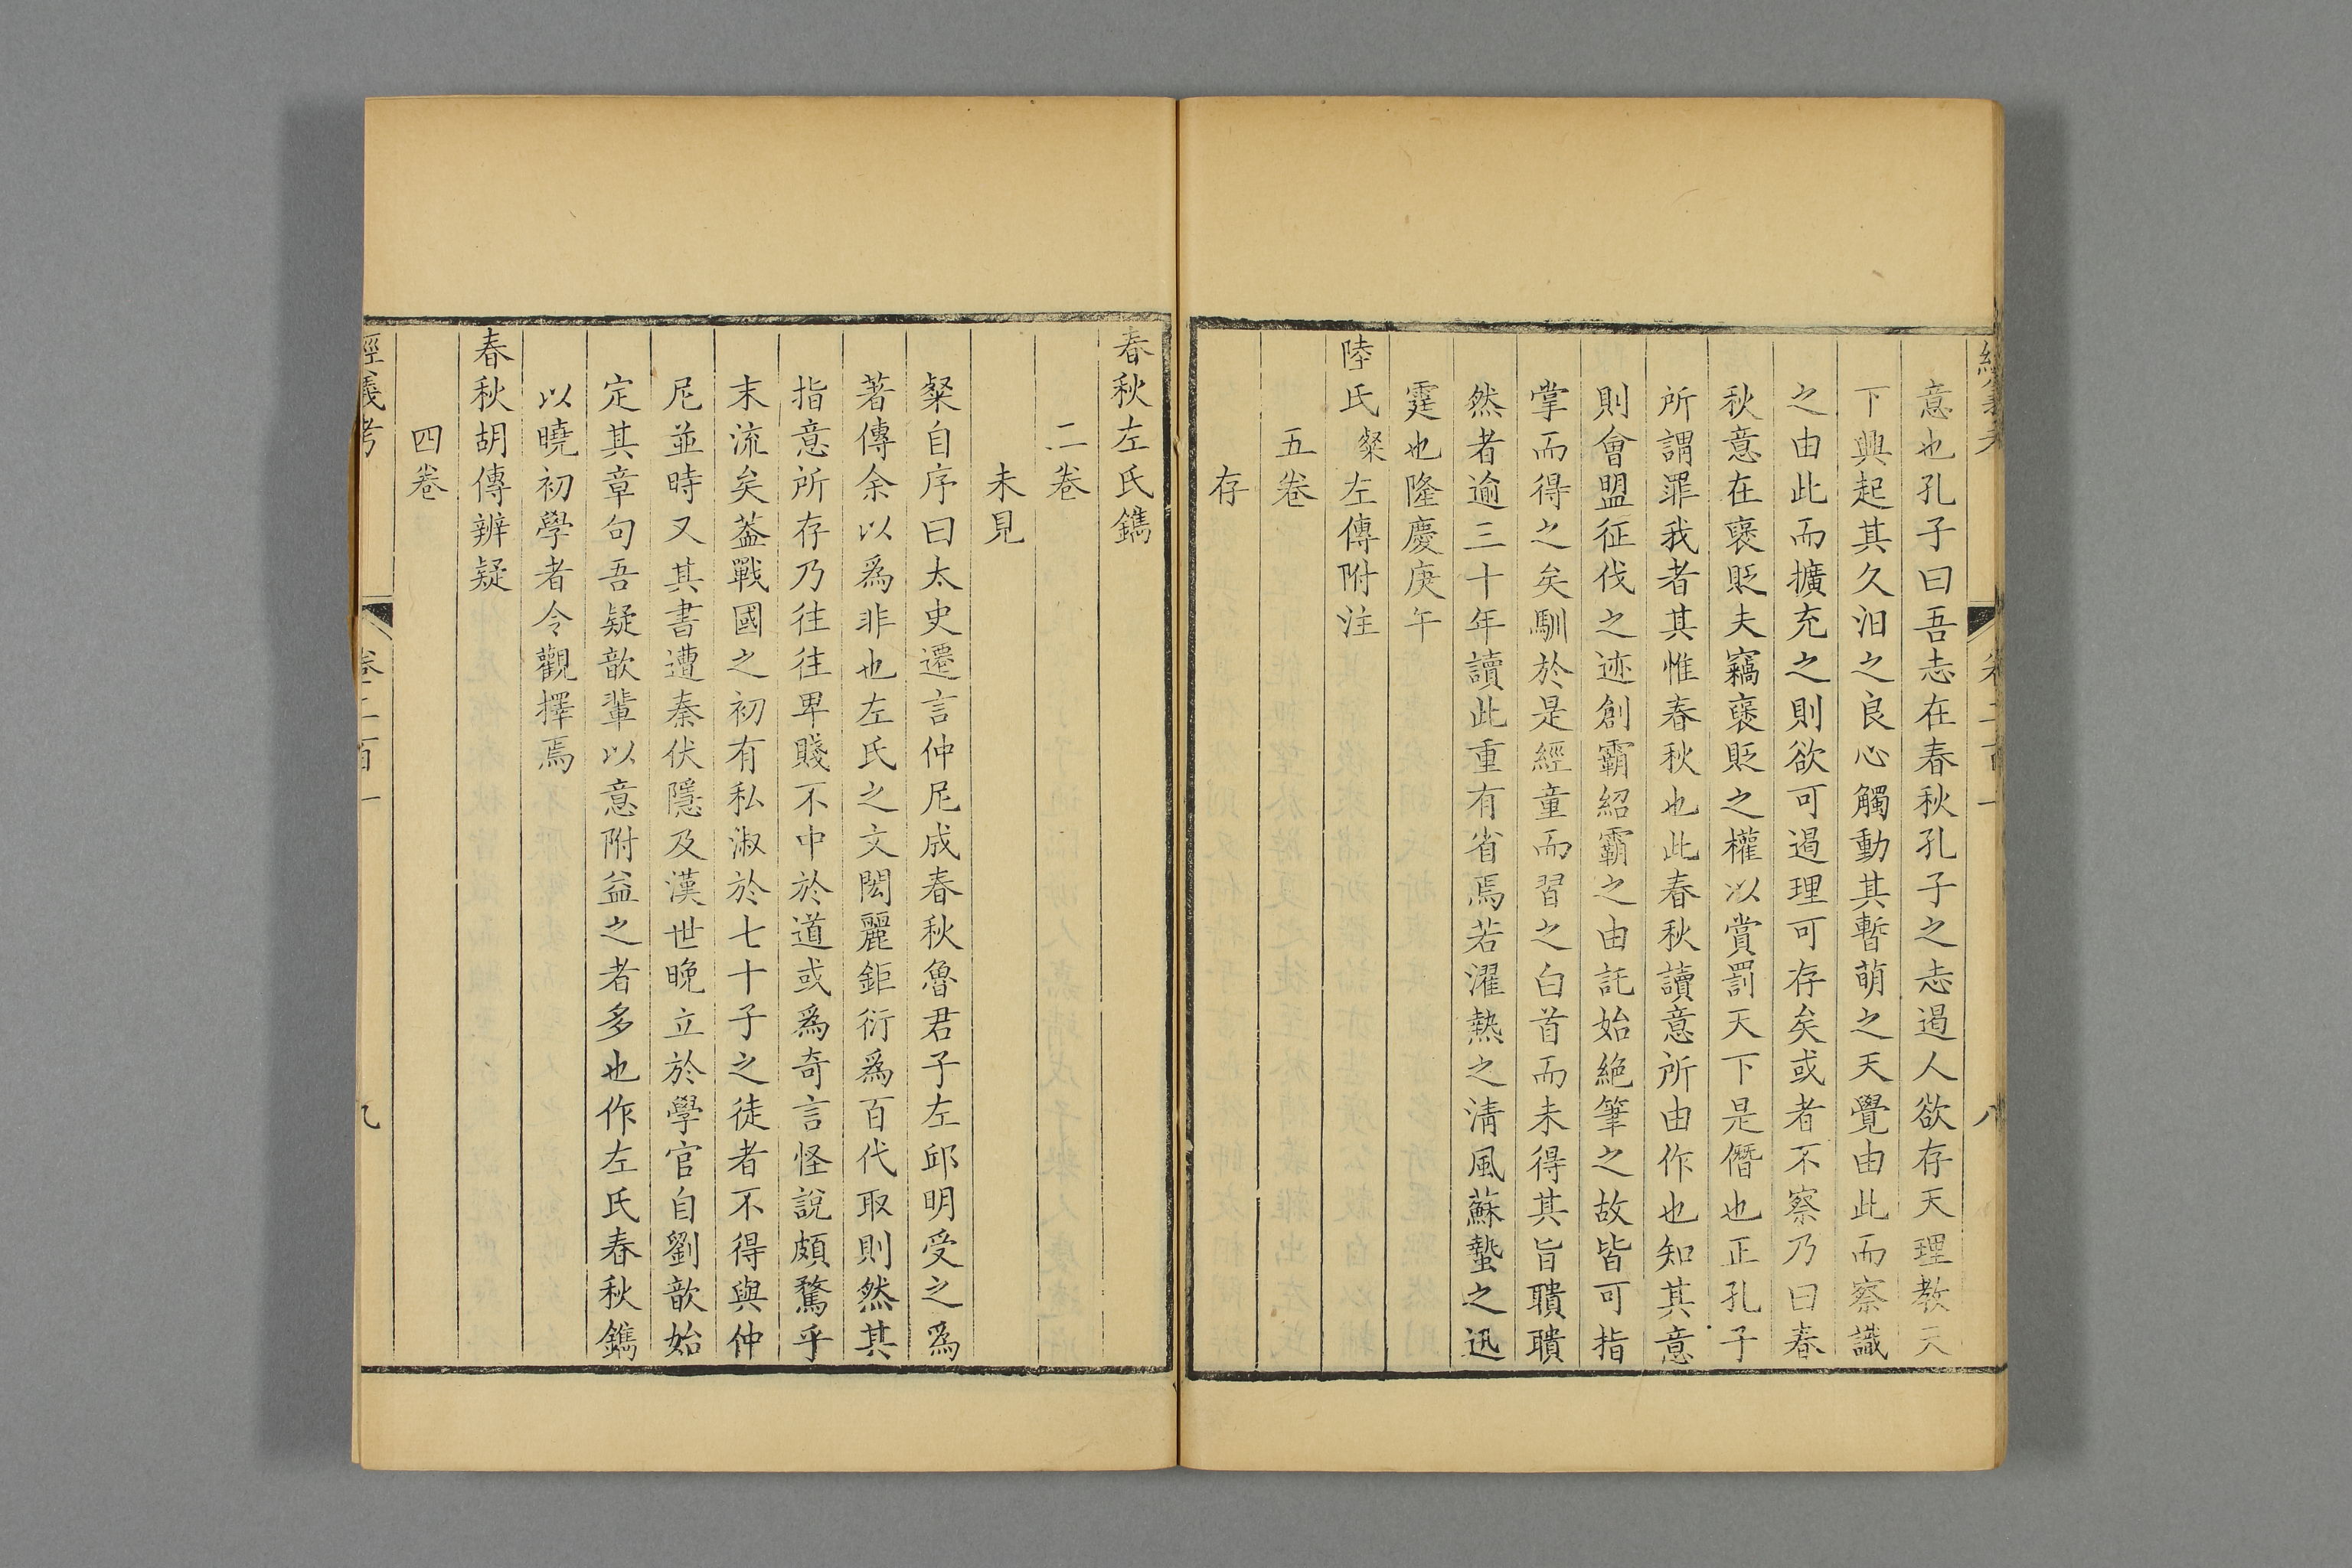 經義考 卷二百一 八
意也孔子曰吾志在春秋孔子之志遏人欲存天理教天
下興起其久汨之良心觸動其暫萌之天覺由此而察識
之由此而擴充之則欲可遏理可存矣或者不察乃曰春
秋意在襃貶夫竊襃貶之權以賞罰天下是僭也正孔子
所謂罪我者其惟春秋也此春秋讀意所由作也知其意
則會盟征伐之迹創霸紹霸之由託始絶筆之故皆可指
掌而得之矣馴於是經童而習之白首而未得其旨聵聵
然者逾三十年讀此重有省焉若濯熱之淸風蘇蟄之迅
霆也隆慶庚午
陸氏粲左傳附注
五卷
存
春秋左氏鐫
二卷
未見
粲自序曰太史遷言仲尼成春秋魯君子左邱明受之爲
著傳余以爲非也左氏之文閎麗鉅衍爲百代取則然其
指意所存乃往往卑賤不中於道或爲奇言怪說頗騖乎
末流矣葢戰國之初有私淑於七十子之徒者不得與仲
尼並時又其書遭秦伏隱及漢世晚立於學官自劉歆始
定其章句吾疑歆輩以意附益之者多也作左氏春秋鐫
以曉初學者令觀擇焉
春秋胡傳辨疑
四卷
經義考 卷二百一 九